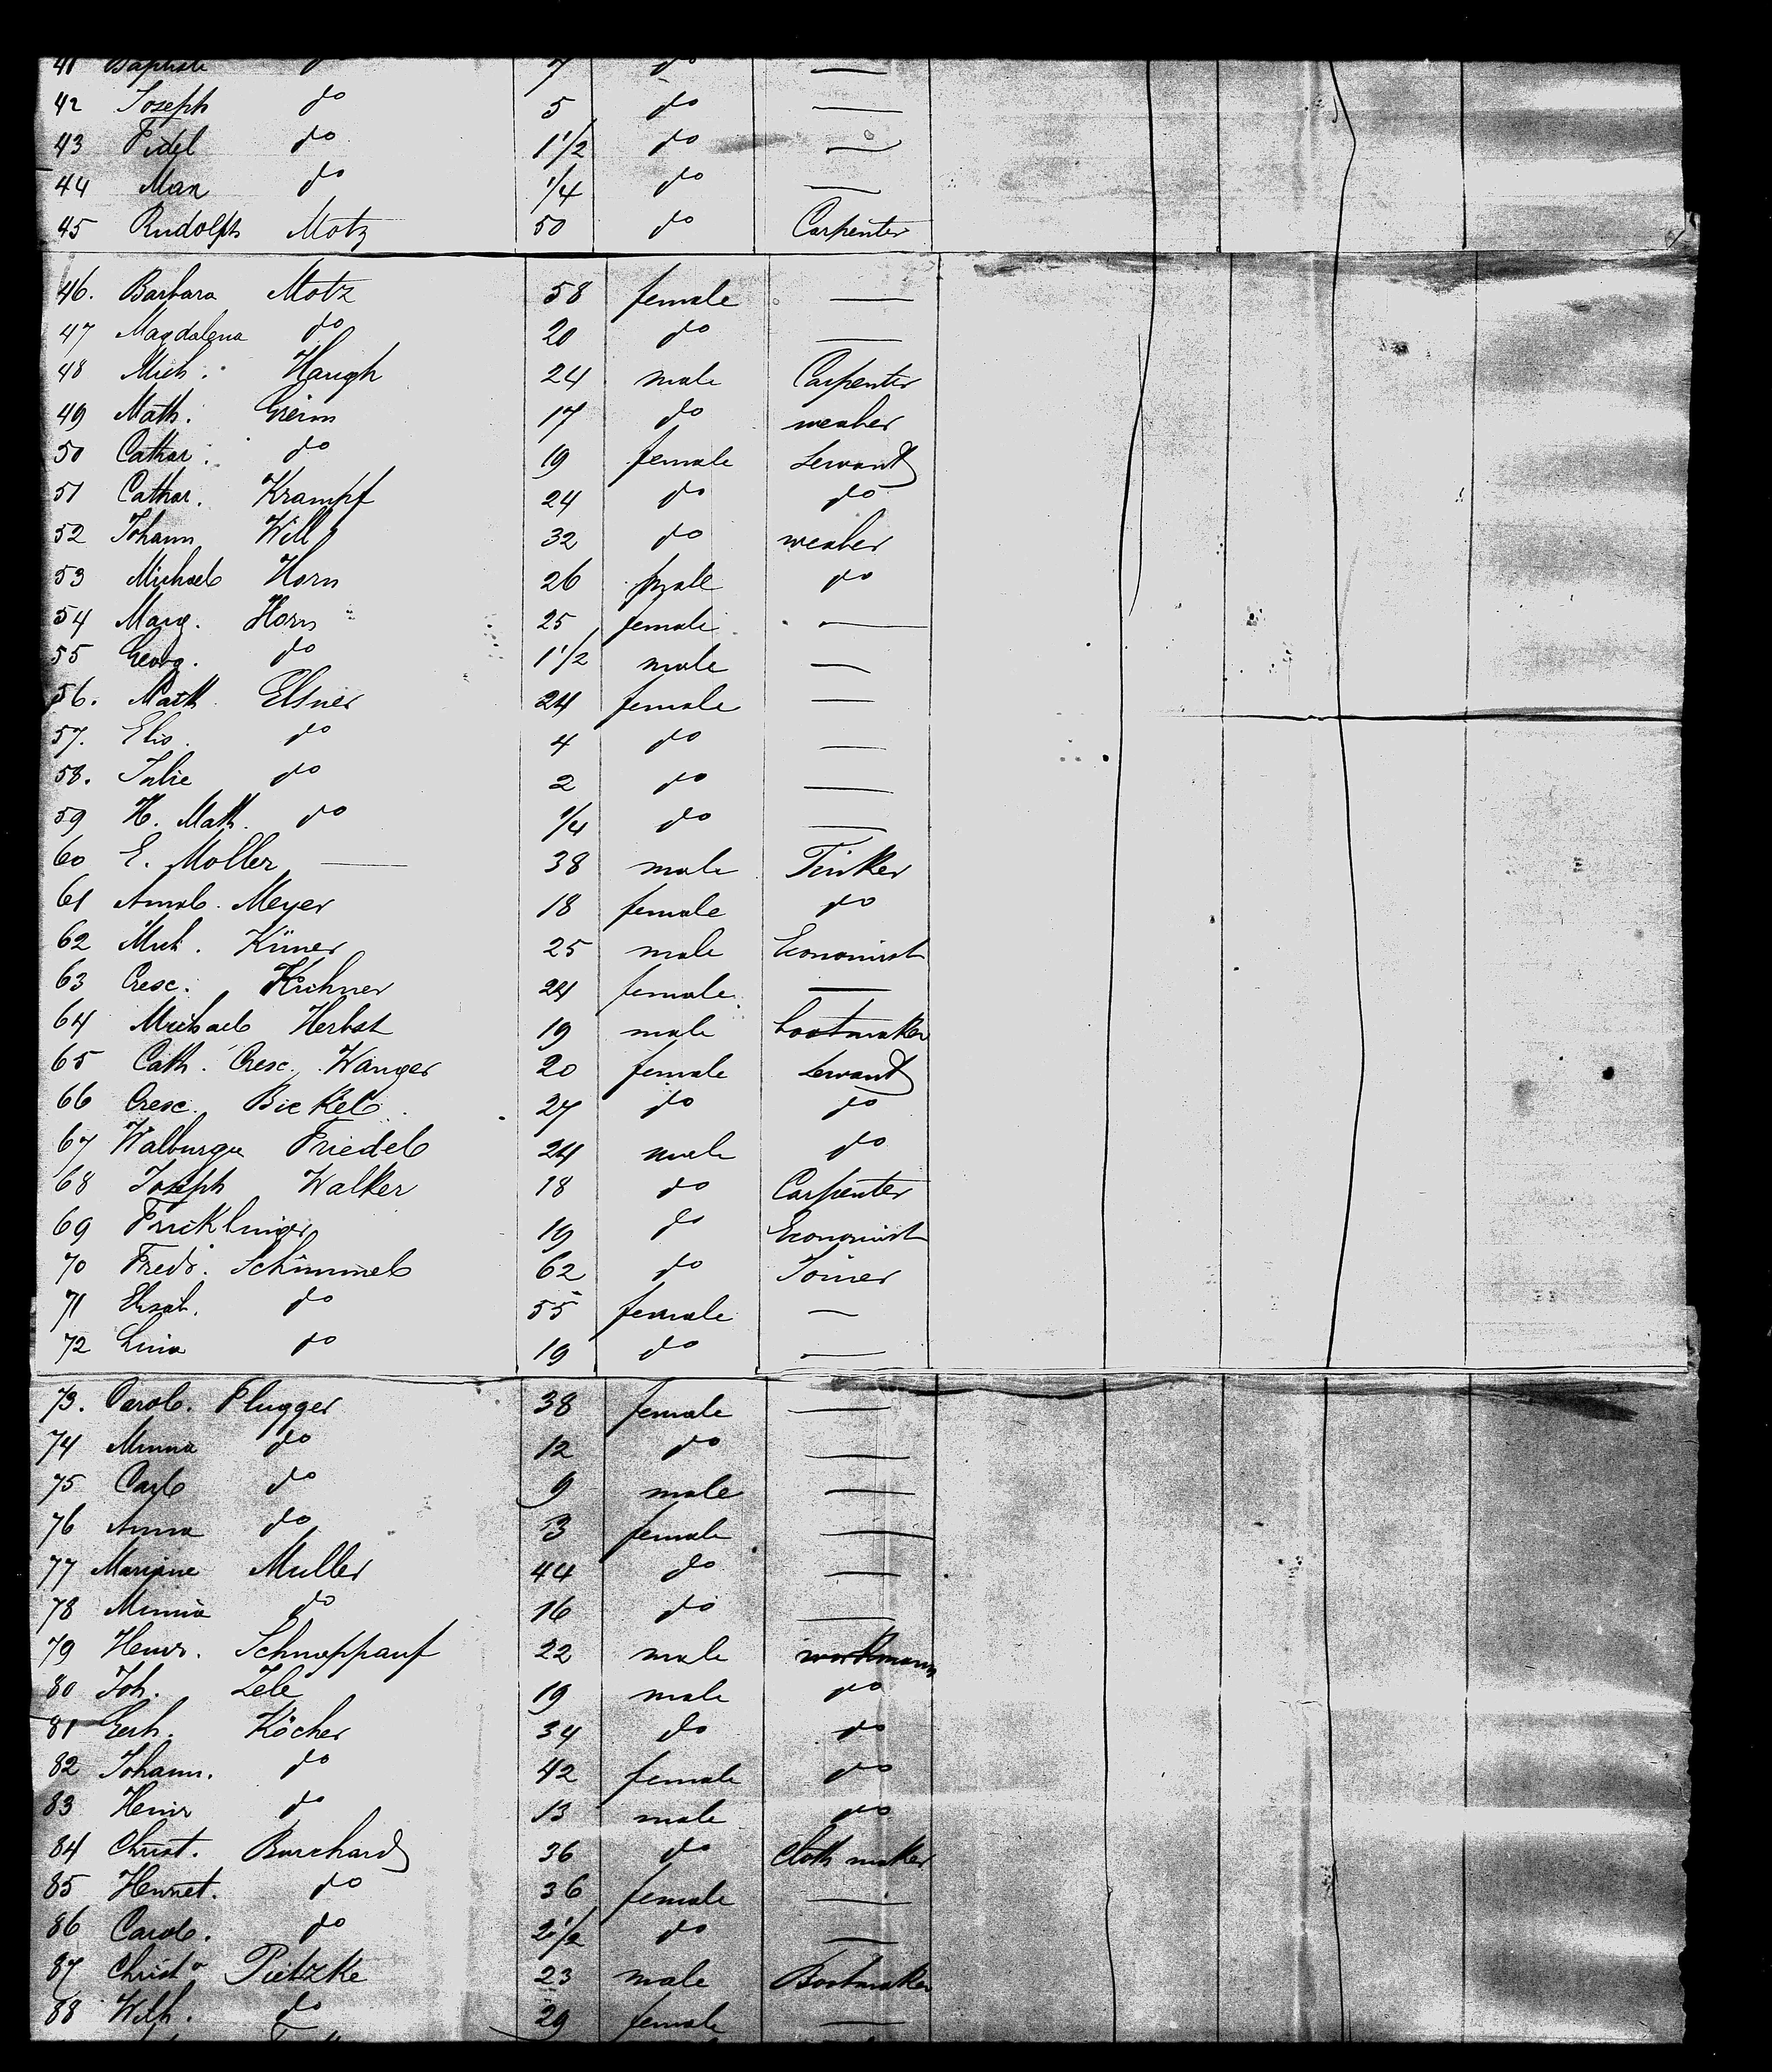 41 Baptiste do 7 do —
42 Joseph do 5 do —
43 Fidel do 1 1/2 do —
44 Max do 1/4 do —
45 Rudolph Motz 50 do Carpenter
46. Barbara Motz 58 female —
47 Magdalena do 20 do —
48 Mich. Haugh 24 male Carpenter
49 Math. Greim 17 do weaber
50 Cathar. do 19 female Servant
51 Cathar. Krampf 24 do do
52 Johann Will 32 do weaber
53 Michael Horn 26 male do
54 Marg. Horn 25 female —
55 Georg. do 1 1/2 male —
56. Math Elsner 24 female —
57. Elis. do 4 do —
58. Julie do 2 do —
59 H. Math. do 1/4 do —
60 E. Moller — 38 male Tinker
61 Amal. Meyer 18 female do
62 Mich. Küner 25 male Economist
63 Cresc. Kichner 24 female —
64 Michael Herbst 19 male bootmaker
65 Cath. Cresc. Wanger 20 female Servant
66 Cresc. Bickel 27 do do
67 Walburga Friedel 24 male do
68 Joseph Walker 18 do Carpenter
69 Fricklinger 19 do Economist
70 Fredr. Schimmel 62 do Joiner
71 Elisab. do 55 female —
72 Lina do 19 do —
73. Carol. Plugger 38 female —
74 Minna do 12 do —
75 Carl do 9 male —
76 Anna do 3 female —
77 Mariane Muller 44 do —
78 Minna do 16 do —
79 Heinr. Schnappauf 22 male workmann
80 Joh. Zele 19 male do
81 Gerh. Köcher 34 do do
82 Johann. do 42 female do
83 Heinr do 13 male do
84 Christ. Burchard 36 do Cloth maker
85 Hennet. do 36 female —
86 Carol. do 2 1/2 do —
87 Christ Pietzke 23 male Bootmaker
88 Wilh. do 29 female —